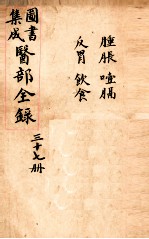 腫脹 噎膈
反胃 飲食
圖書
集成 醫部全錄
三十七册